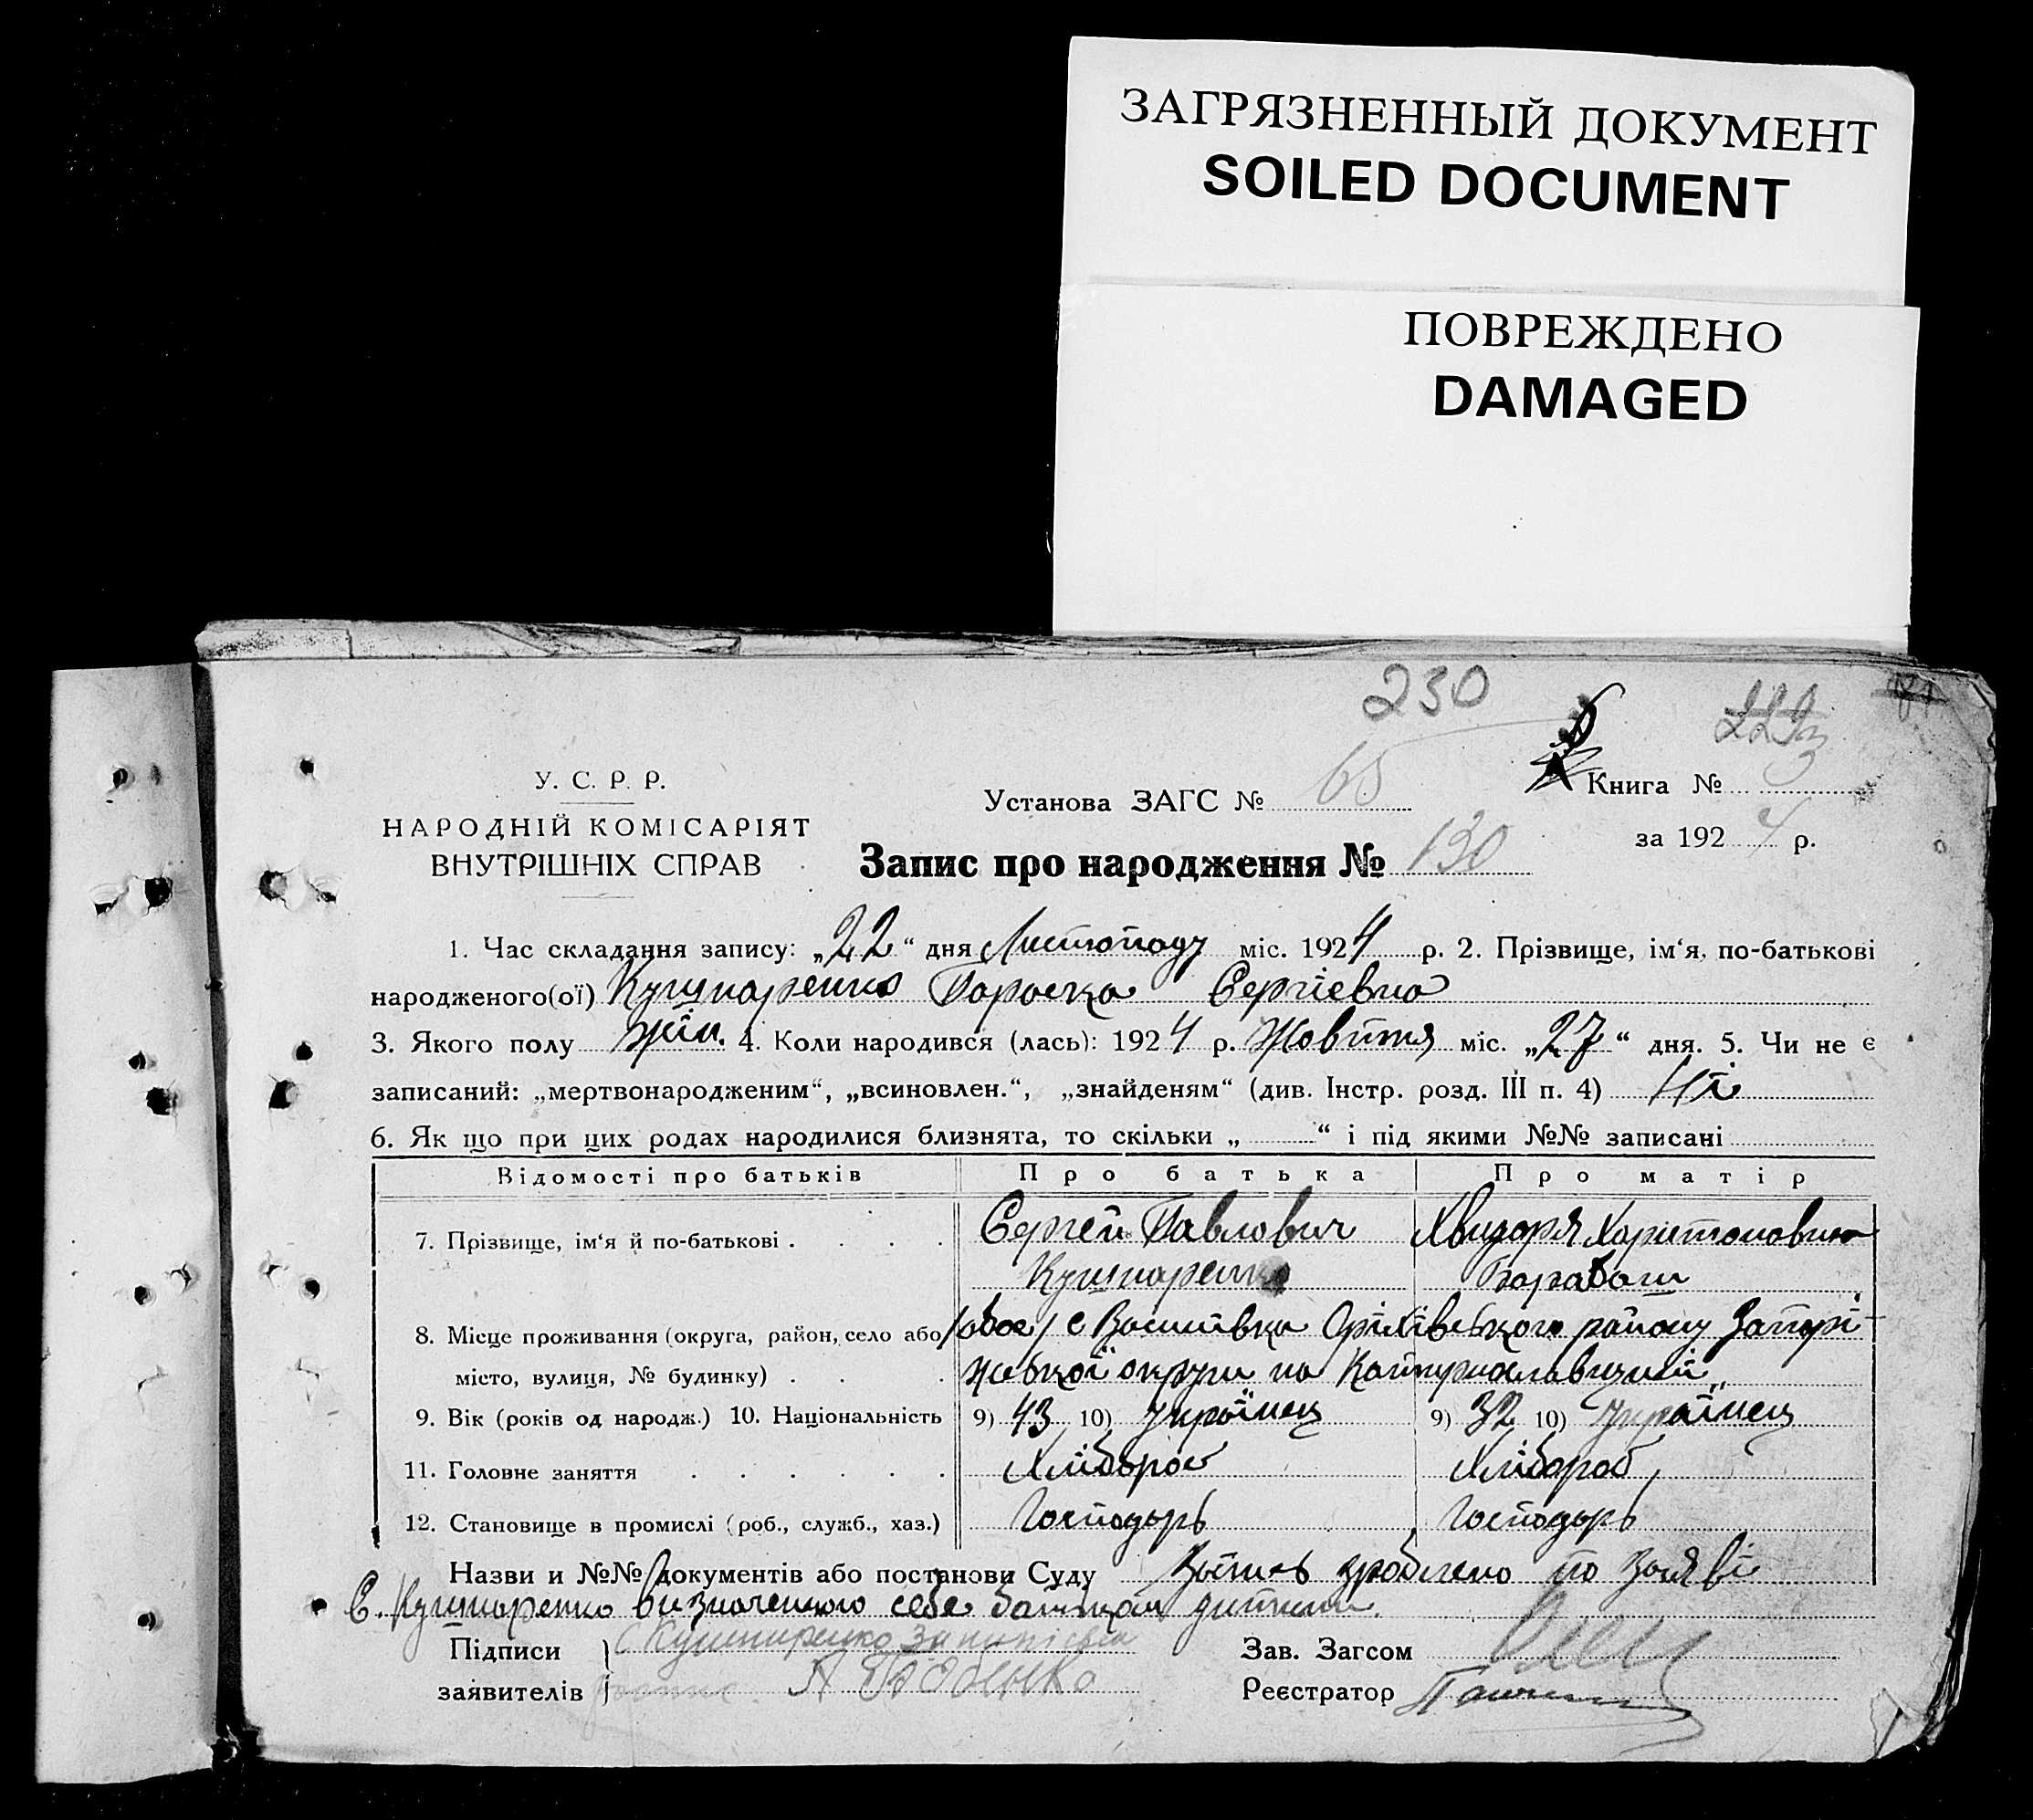 ЗАГРЯЗНЕННЫЙ ДОКУМЕНТ
SOILED DOCUMENT
ПОВРЕЖДЕНО
DAMAGED
230
229
У. С. Р. Р.
НАРОДНІЙ КОМІСАРІЯТ
ВНУТРІШНІХ СПРАВ
Установа ЗАГС № 65
Книга № 3
за 1924 р.
Запис про народження № 130
1. Час складання запису: „22“ дня Листопаду міс. 1924 р. 2. Прізвище, ім‘я, по-батькові
народженого(ої) Кушнаренко Параска Сергієвна
3. Якого полу жін. 4. Коли народився (лась): 1924 р. Жовтня міс. „27“ дня. 5. Чи не є
записаний: „мертвонародженим“, „всиновлен.“, „знайденям“ (див. Інстр. розд. III п. 4) Ні
6. Як що при цих родах народилися близнята, то скільки „ “ і під якими №№ записані
Відомості про батьків Про батька Про матір
7. Прізвище, ім‘я й по-батькові . . . . Сергей Павлович Хвидоря Харитоновна
Кушнаренко Барабаш
8. Місце проживання (округа, район, село або /обоє/ с Василівка Оріхівського району Запорі-
місто, вулиця, № будинку) . . . жської округи на Катеринославщині
9. Вік (років од народж.) 10. Національність 9) 43 10) Українец 9) 32 10) Українец
11. Головне заняття . . . . . . Хлібороб Хлібороб
12. Становище в промислі (роб., служб., хаз.) Господарь Господарь
Назви и №№ документів або постанови Суду Запись зроблено по заяві
С. Кушнаренко визначенного себе батьком дитини.
Підписи С Кушнаренко
заявителів А Бабенко
Зав. Загсом
Реєстратор